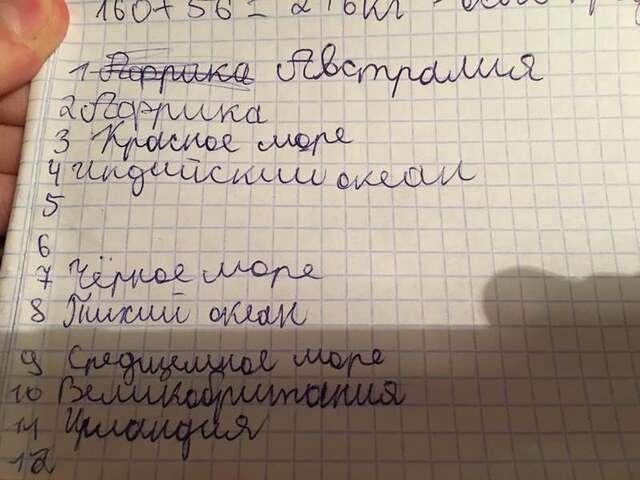 160+56=216кг
1 Африка Австралия
2 Африка
3 Красное море
4 Индийский океан
5
6
7 Чёрное море
8 Тихий океан
9 Средиземное море
10 Великобритания
11 Ирландия
12